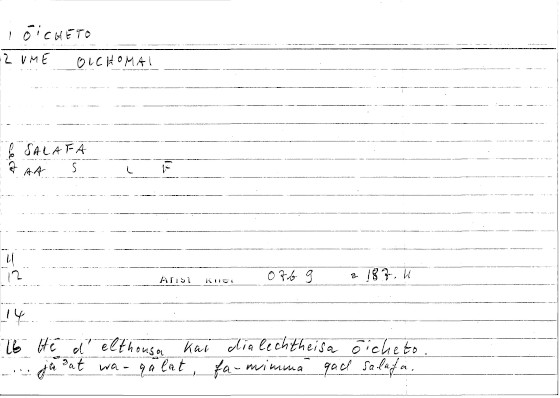 1 ŌICHETO
2 VME OICHOMAI
6 SALAFA
7 AA S L F
11
12 Arist Rhet 0769 = 187.4
14
16 Hē d' elthousa kai dialechtheisa ōicheto.
... jāʾat wa-qālat, fa-mimmā qad salafa.